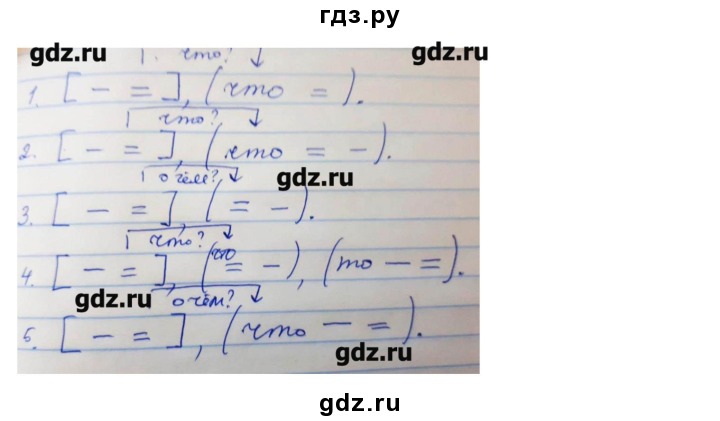 гдз.ру
gdz.ru gdz.ru
что?
1. [ – = ], (что = ).
что?
2. [ – = ], (что = – ).
о чём?
gdz.ru
3. [ – = ], ( = – ).
что?
что
4. [ – = ], ( = – ), (то – = ).
gdz.ru
о чём?
5. [ – = ], (что – = ).
gdz.ru
gdz.ru